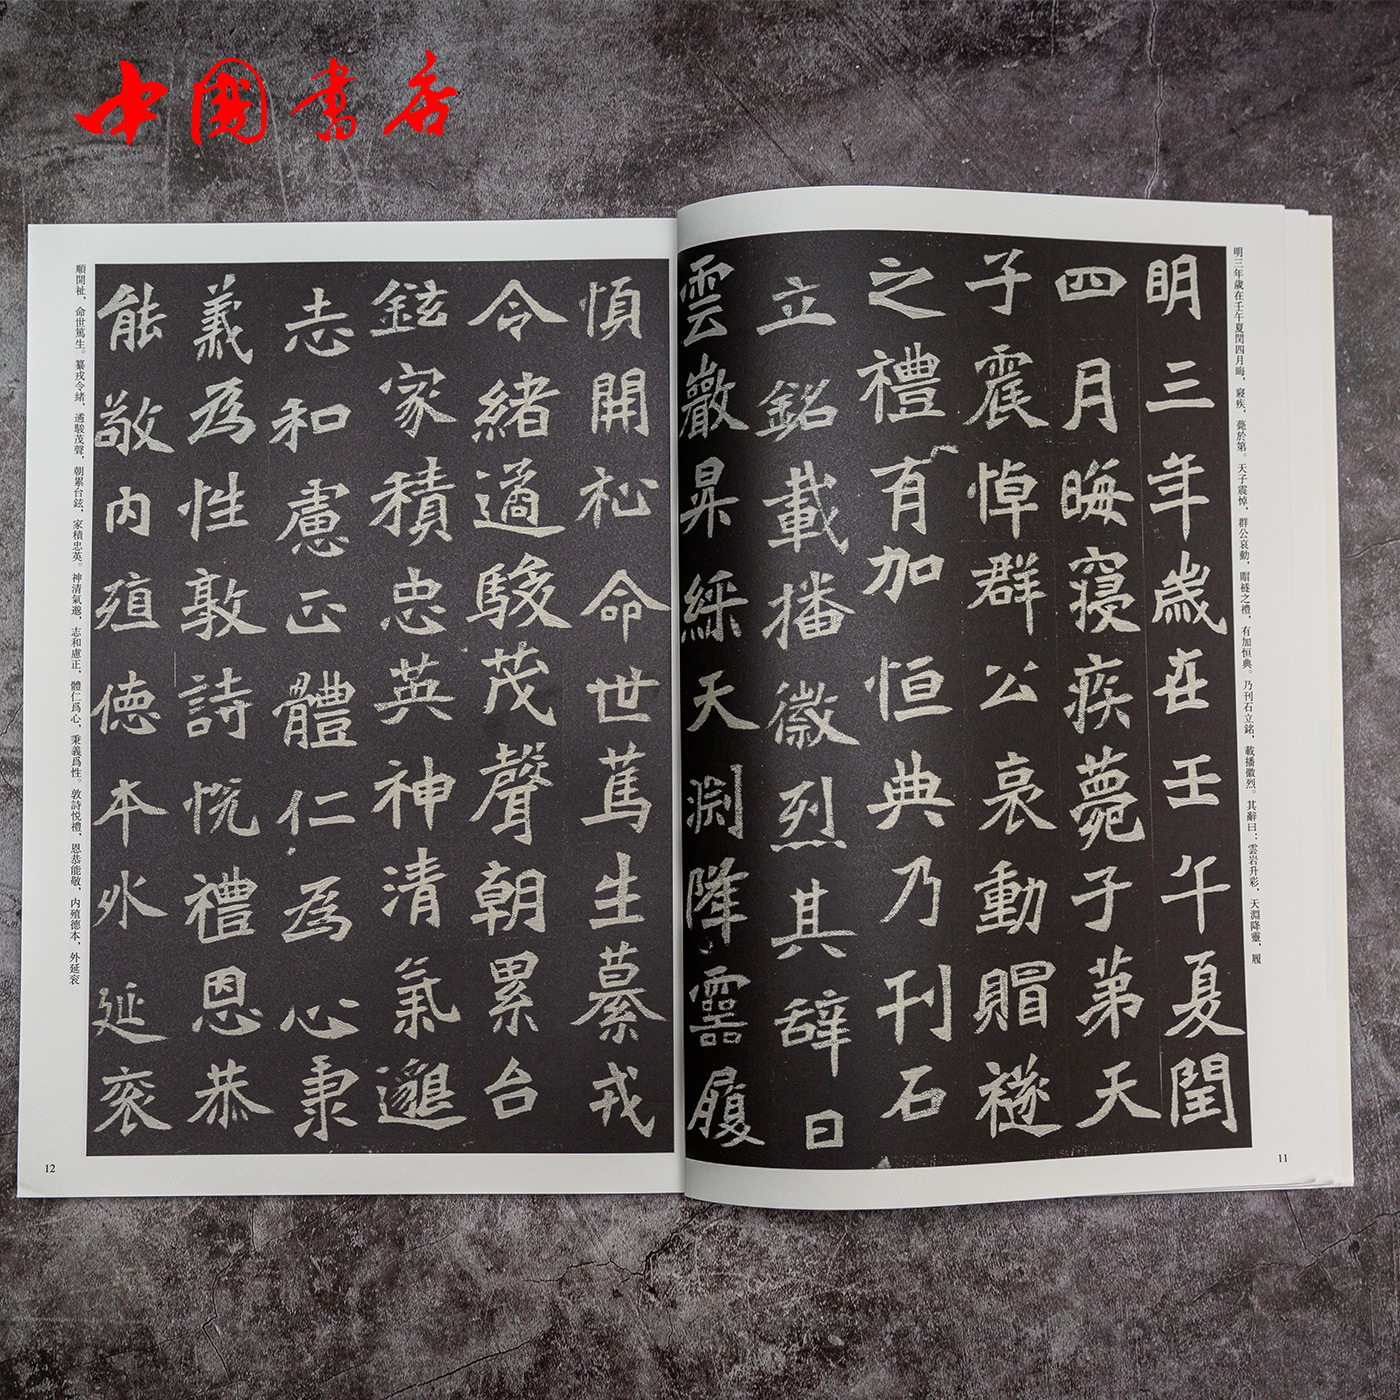 中國書店
明三年歲在壬午夏閏四月晦，寢疾，薨於第。天子震悼，群公哀動，賵襚之禮，有加恒典。乃刊石立銘，載播徽烈。其辭曰：雲岩升彩，天淵降靈，履
明三年歲在壬午夏閏
四月晦寢疾薨于第天
子震悼群公哀動賵襚
之禮有加恒典乃刊石
立銘載播徽烈其辭曰
雲巖昇綵天淵降靈履
11
順開祉命世篤生纂戎
令緒遹駿茂聲朝累台
鉉家積忠英神清氣邈
志和慮正體仁為心秉
義為性敦詩悅禮恩恭
能敬内殖德本外延衮
順開祉，命世篤生。纂戎令緒，遹駿茂聲，朝累台鉉，家積忠英。神清氣邈，志和慮正，體仁爲心，秉義爲性。敦詩悦禮，恩恭能敬，内殖德本，外延衮
12